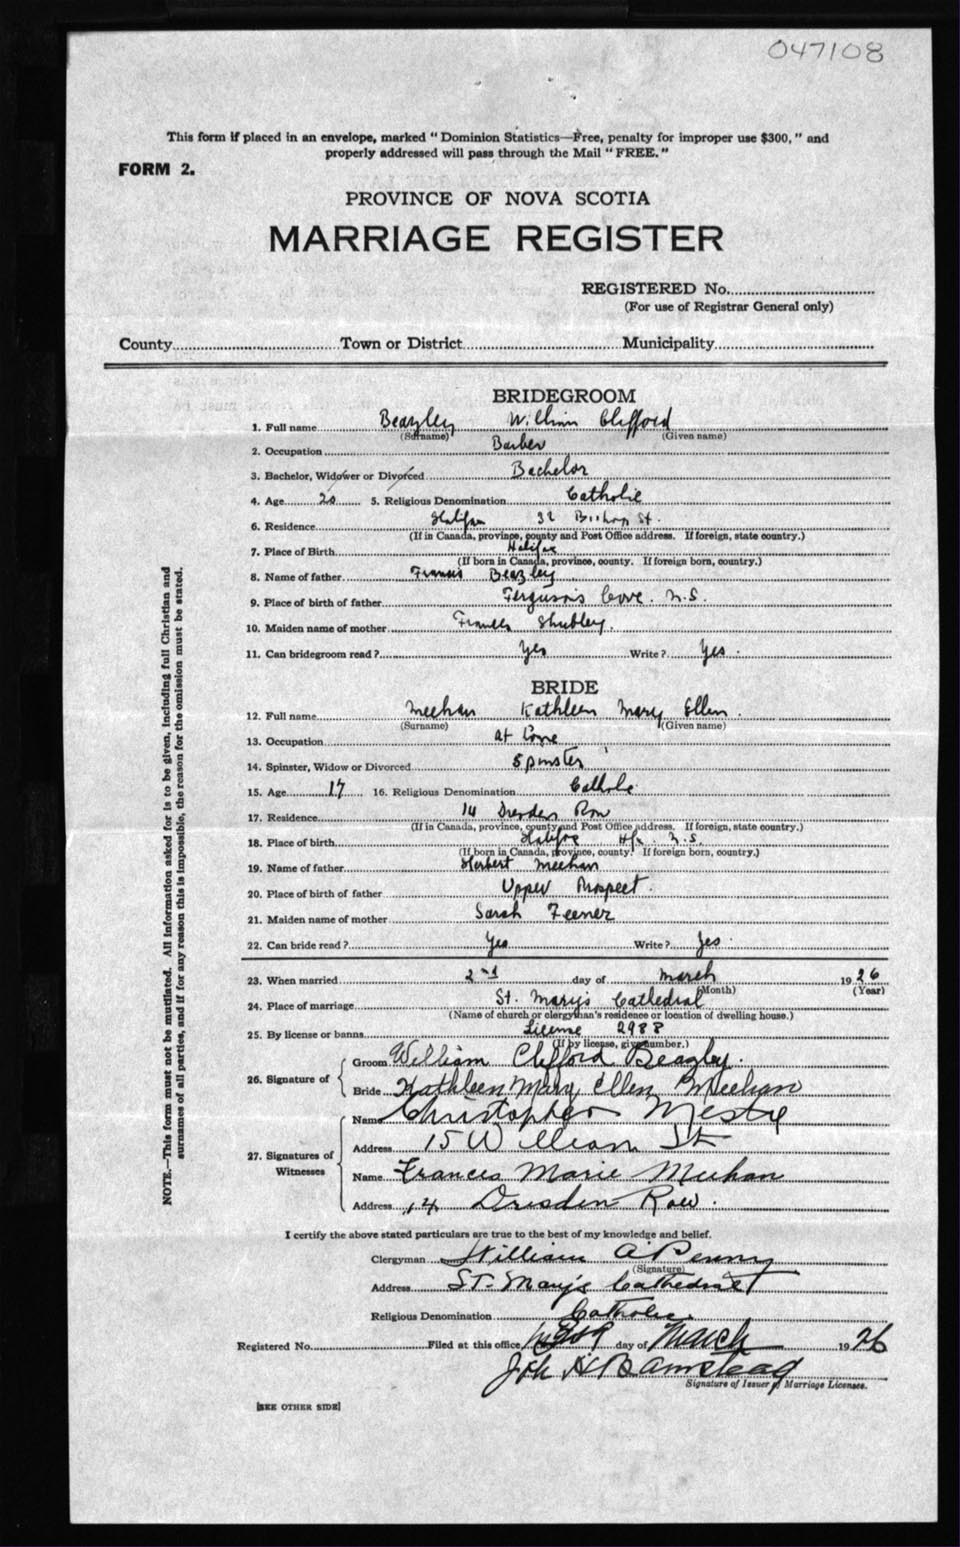 047108
This form if placed in an envelope, marked "Dominion Statistics—Free, penalty for improper use $300," and
properly addressed will pass through the Mail "FREE."
FORM 2.
PROVINCE OF NOVA SCOTIA
MARRIAGE REGISTER
REGISTERED No.
(For use of Registrar General only)
County Town or District Municipality
BRIDEGROOM
1. Full name Beazley William Clifford
(Surname) (Given name)
2. Occupation Barber
3. Bachelor, Widower or Divorced Bachelor
4. Age 20 5. Religious Denomination Catholic
6. Residence Halifax 32 Bishop St.
(If in Canada, province, county and Post Office address. If foreign, state country.)
7. Place of Birth Halifax
(If born in Canada, province, county. If foreign born, country.)
8. Name of father Francis Beazley
9. Place of birth of father Ferguson's Cove. N.S.
10. Maiden name of mother Frances Shubley.
11. Can bridegroom read? Yes Write? Yes.
BRIDE
12. Full name Meehan Kathleen Mary Ellen.
(Surname) (Given name)
13. Occupation at home
14. Spinster, Widow or Divorced Spinster
15. Age 17 16. Religious Denomination Catholic
17. Residence 14 Dresden Row
(If in Canada, province, county and Post Office address. If foreign, state country.)
18. Place of birth Halifax Hfx. N.S.
(If born in Canada, province, county. If foreign born, country.)
19. Name of father Herbert Meehan
20. Place of birth of father Upper Prospect.
21. Maiden name of mother Sarah Feener
22. Can bride read? Yes Write? Yes.
23. When married 2nd day of March 1926
(Month) (Year)
24. Place of marriage St. Mary's Cathedral
(Name of church or clergyman's residence or location of dwelling house.)
25. By license or banns License 2988
(If by license, give number.)
26. Signature of Groom William Clifford Beazley.
Bride Kathleen Mary Ellen Meehan
27. Signatures of Witnesses
Name Christopher Mestre
Address 15 William St
Name Frances Marie Meehan
Address 14 Dresden Row.
I certify the above stated particulars are true to the best of my knowledge and belief.
Clergyman William A. Penny
(Signature)
Address St. Mary's Cathedral
Religious Denomination Catholic
Registered No. Filed at this office day of March 1926
Signature of Issuer of Marriage Licenses.
[SEE OTHER SIDE]
NOTE.—This form must not be mutilated. All information asked for is to be given, including full Christian and
surnames of all parties, and if for any reason this is impossible, the reason for the omission must be stated.